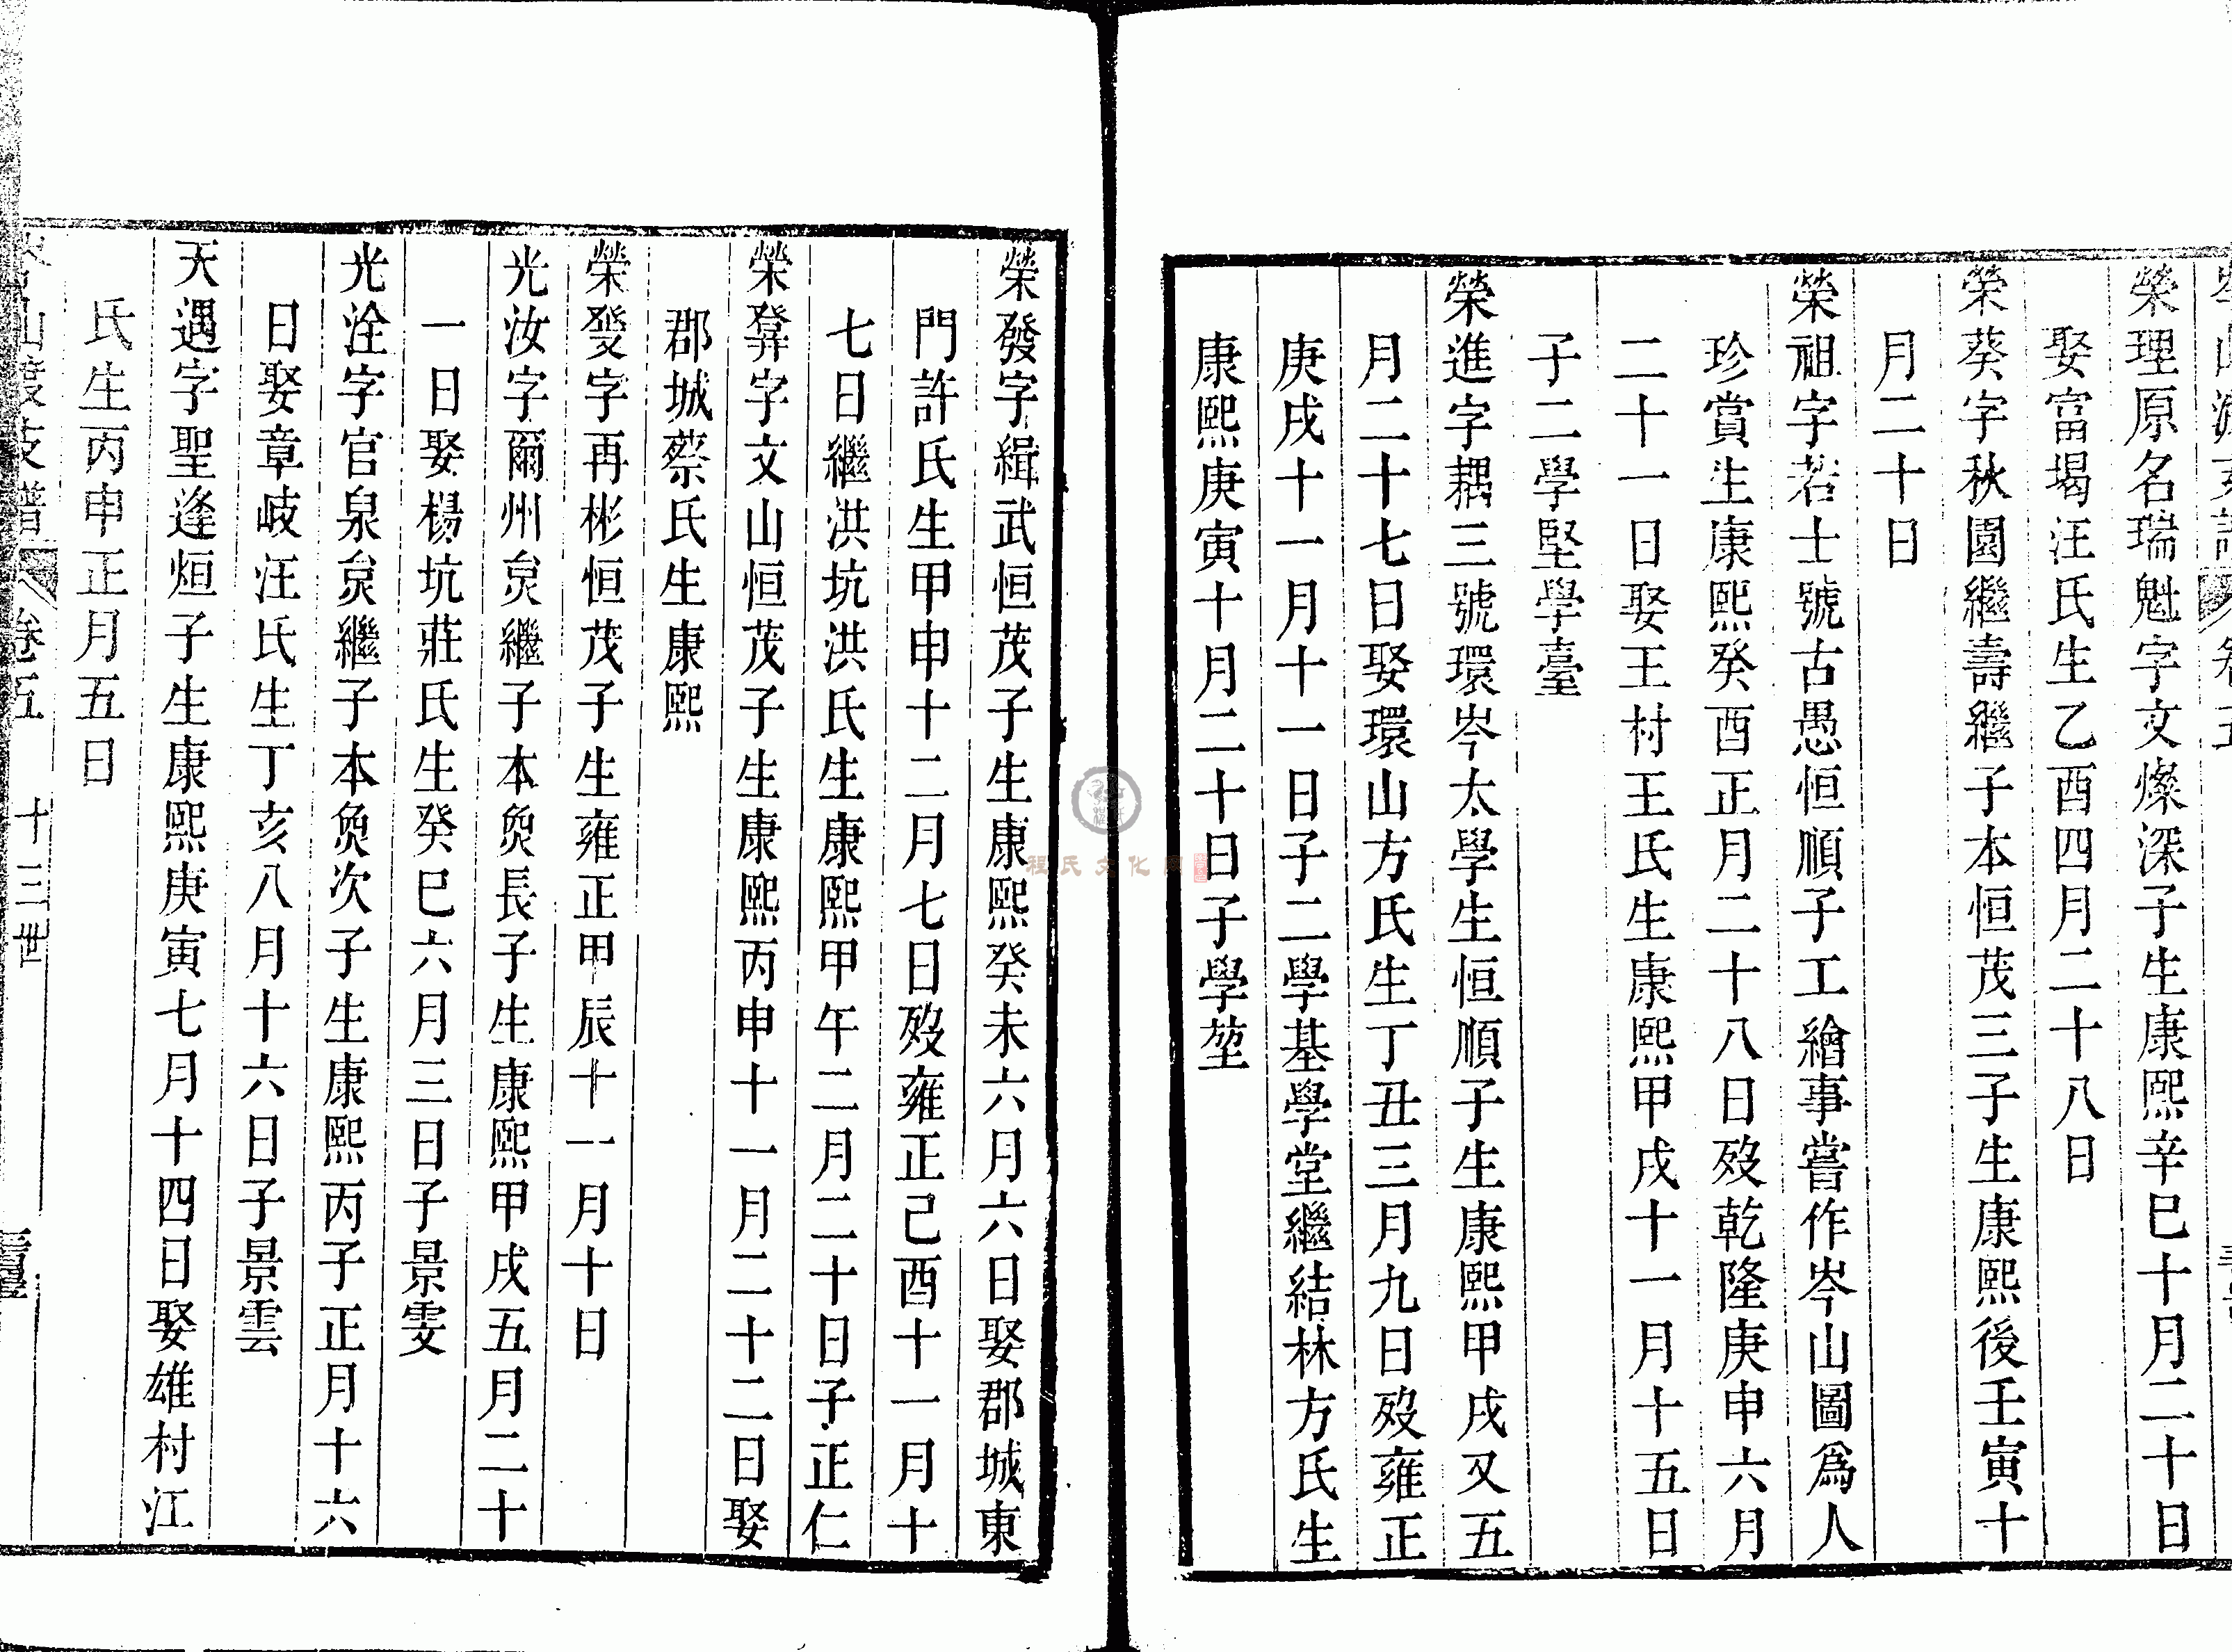 榮理原名瑞魁字文燦深子生康熙辛巳十月二十日
娶富堨汪氏生乙酉四月二十八日
榮葵字秋園繼壽繼子本恒茂三子生康熙後壬寅十
月二十日
榮祖字若士號古愚恒順子工繪事嘗作岑山圖爲人
珍賞生康熙癸酉正月二十八日歿乾隆庚申六月
二十一日娶王村王氏生康熙甲戌十一月十五日
子二學堅學臺
榮進字耦三號環岑太學生恒順子生康熙甲戌又五
月二十七日娶環山方氏生丁丑三月九日歿雍正
庚戌十一月十一日子二學基學堂繼結林方氏生
康熙庚寅十月二十日子學堃
榮發字緝武恒茂子生康熙癸未六月六日娶郡城東
門許氏生甲申十二月七日歿雍正己酉十一月十
七日繼洪坑洪氏生康熙甲午二月二十日子正仁
榮彛字文山恒茂子生康熙丙申十一月二十二日娶
郡城蔡氏生康熙
榮燮字再彬恒茂子生雍正甲辰十一月十日
光汝字爾州炱繼子本奐長子生康熙甲戌五月二十
一日娶楊坑莊氏生癸巳六月三日子景雯
光淦字官泉炱繼子本奐次子生康熙丙子正月十六
日娶章岐汪氏生丁亥八月十六日子景雲
天遇字聖逢烜子生康熙庚寅七月十四日娶雄村江
氏生丙申正月五日
山渡支譜 卷五 十三世
程氏文化網